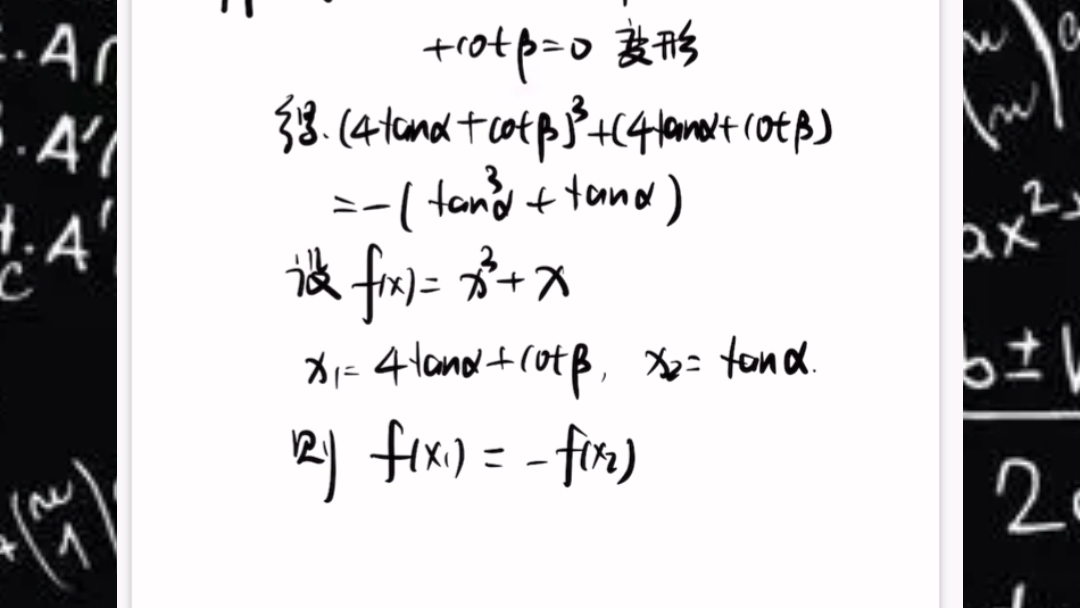 +cotβ=0 变形
得.(4tanα+cotβ)³+(4tanα+cotβ)
=-(tan³α+tanα)
设 f(x)=x³+x
x₁=4tanα+cotβ, x₂=tanα.
则 f(x₁)=-f(x₂)
ax²+
b±